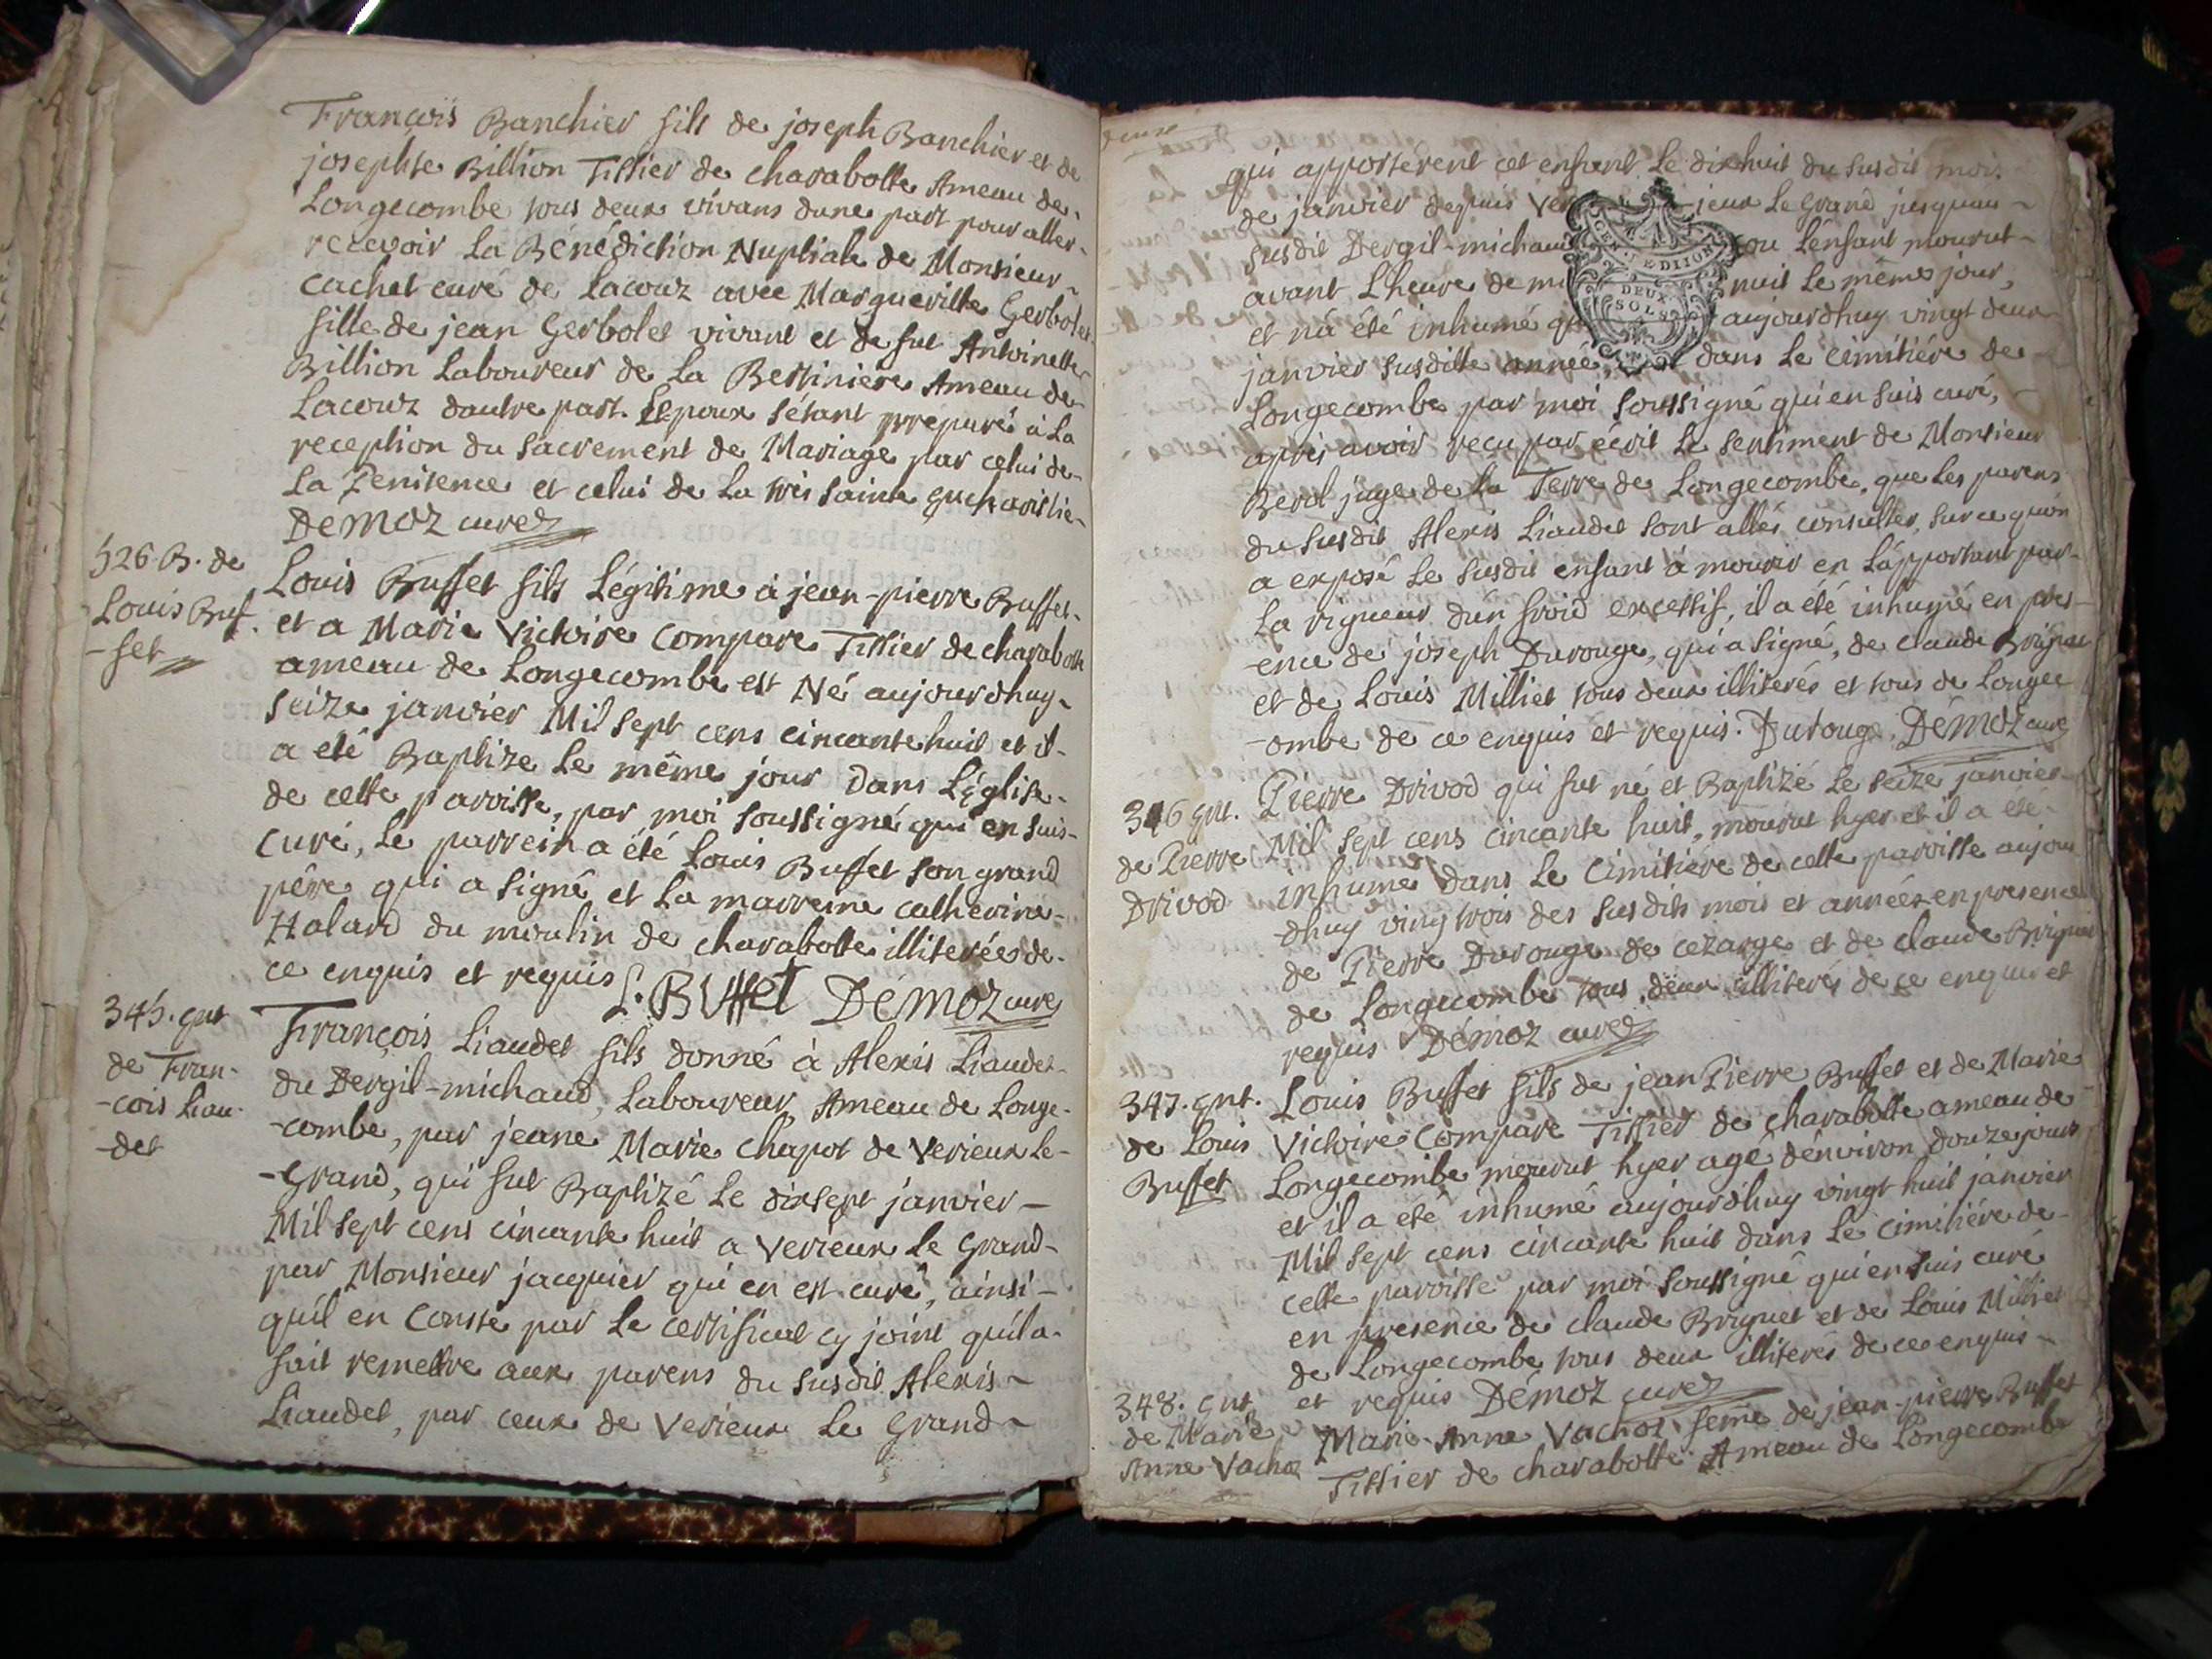 François Banchier fils de joseph Banchier et de
josephte Billion Tissier de charabotte Ameau de
Longecombe tous deux vivans dune part pour aller
recevoir La Bénédiction Nuptiale de Monsieur
Cachet curé de Lacouz avec Margueritte Gerbolet
fille de jean Gerbolet vivant et de fut Antoinette
Billion Laboureur de La Bertiniére Ameau de
Lacouz dautre part. Lepoux sétant preparé à La
reception du Sacrement de Mariage par celui de
La Penitence et celui de La très sainte Eucharistie
Démoz curé
526. B. de
Louis Buf
-fet
Louis Buffet fils Légitime à jean-pierre Buffet
et a Marie Victoire Compare Tissier de charabotte
ameau de Longecombe est Né aujourdhuy
seize janvier Mil sept cens cincante huit et il
a été Baptize Le même jour dans L'église
de cette paroisse, par moi soussigné qui en suis
curé, Le parrein a été Louis Buffet son grand
pére qui a signé et La marreine catherine
Halard du moulin de charabotte illiterée de
ce enquis et requis L. Buffet Démoz curé
345. ent
de Fran-
-cois Liau-
-det
François Liaudet fils donné à Alexis Liaudet
du Dergil-michaud, Laboureur Ameau de Longe-
-combe, par jeane Marie Chapot de Verieux Le-
-Grand, qui fut Baptizé Le dixsept janvier
Mil sept cens cincante huit a Verieux Le Grand
par Monsieur jacquier qui en est curé, ainsi
qu'il en Conste par Le certificat cy joint qu'il a
fait remettre aux parens du susdit Alexis
Liaudet, par ceux de Verieux Le Grand
qui apporterent cet enfant Le dixhuit du susdit moi
de janvier depuis Ver jeux Le Grand jusquau
susdit Dergil-michaud ou L'enfant mourut
avant L'heure de mi nuit Le même jour,
et n'a été inhumé qu aujourdhuy vingt deux
janvier susditte année, dans Le cimitiére de
GEN. EDIJON
DEUX
SOLS
Longecombe par moi soussigné qui en suis curé,
aprés avoir recu par écrit Le sentiment de Monsieur
Berol juge de La Terre de Longecombe, que Les parens
du susdit Alexis Liaudet sont allés consulter, sur ce quon
a exposé Le susdit enfant à mourir en L'apportant par
La rigueur d'un froid excessif, il a été inhumé en pres-
-ence de joseph Durouge, qui a signé, de claude Briguet
et de Louis Milliet tous deux illiterés et tous de Longec
-ombe de ce enquis et requis. Durouge. Démoz curé
346 ent.
de Pierre
Drivod
Pierre Drivod qui fut né et Baptizé Le seize janvier
Mil sept cens cincante huit, mourut hyer et il a été
inhumé dans Le Cimitiére de cette paroisse aujour
dhuy vingt trois des susdits mois et année en presence
de Pierre Durouge de cezarge et de claude Briguet
de Longecombe tous deux illiterés de ce enquis et
requis Démoz curé
347. ent.
de Louis
Buffet
Louis Buffet fils de jean Pierre Buffet et de Marie
Victoire Compare Tissier de charabotte ameau de
Longecombe mourut hyer agé d'enviroin douze jours
et il a été inhumé aujourdhuy vingt huit janvier
Mil sept cens cincante huit dans Le Cimitiére de
cette paroisse par moi soussigné qui en suis curé
en presence de claude Briguet et de Louis Milliet
de Longecombe tous deux illiterés de ce enquis
et requis Démoz curé
348. ent
de Marie
Anne Vachoz
Marie-Anne Vachoz feme de jean-pierre Buffet
Tissier de charabotte Ameau de Longecombe